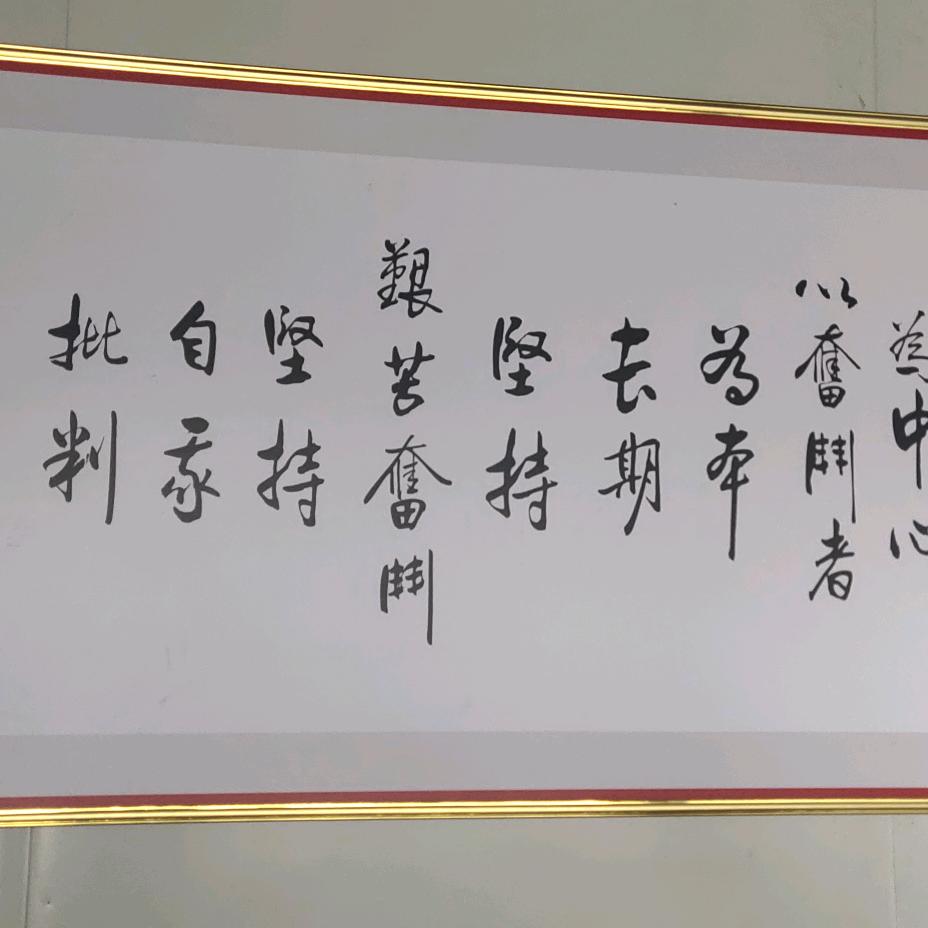 為中心
以奮鬥者
為本
長期
堅持
艱苦奮鬥
堅持
自我
批判